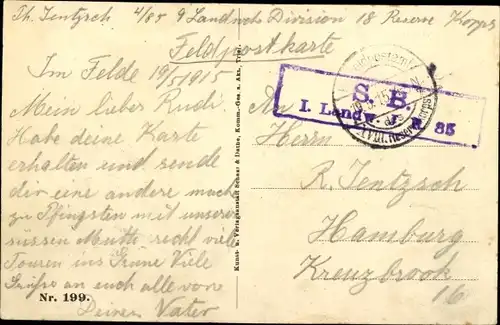 Th. Jentzsch 4/85 9 Landwehr Division 18 Reserve Korps
Feldpostkarte
Im Felde 19/5 1915
Mein lieber Rudi
Habe deine Karte
erhalten und sende
dir eine andere mach
zu Pfingsten mit unserer
süssen Mutti recht viele
Touren ins Grüne Viele
Grüße an euch alle von
Deinem Vater
Nr. 199.
Kunst- u. Verlagsanstalt Schaar & Dathe, Komm.-Ges. a. Akt. Trier.
S. B.
I. Landw. J. R 85
An
Herrn
R. Jentzsch
Hamburg
Kreuzbrook
16